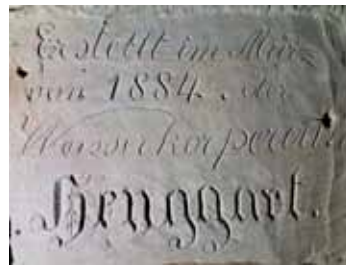 Erstellt im März
von 1884. der
Wasserkorporation
Henggart.